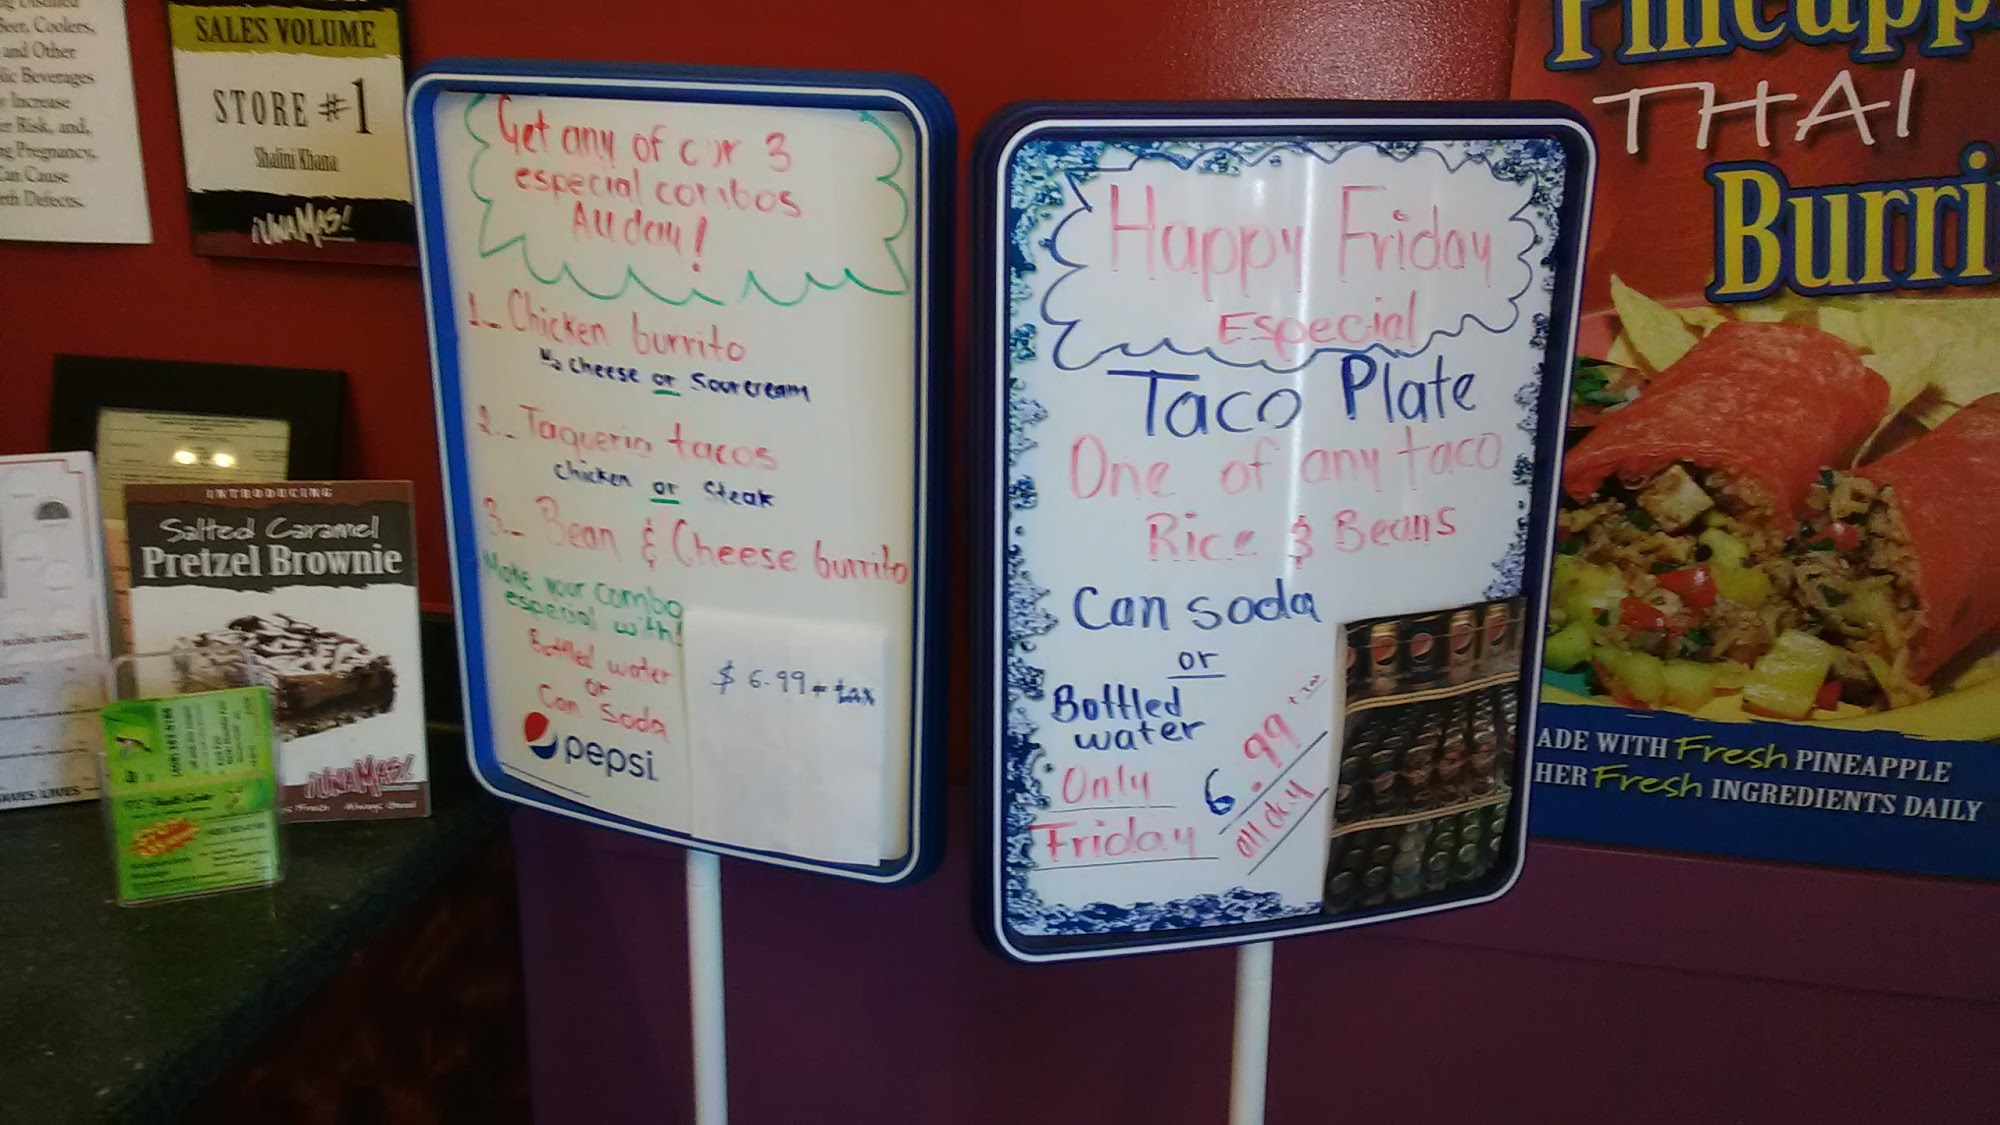 Beer, Coolers,
and Other
Beverages
Increase
Risk, and,
Pregnancy,
Can Cause
Defects.
SALES VOLUME
STORE #1
Shalini Khana
¡UNA MAS!
Get any of our 3
especial combos
All day!
1.- Chicken burrito
No cheese or Sourcream
2.- Taqueria tacos
chicken or steak
3.- Bean & Cheese burrito
Make your combo
especial with!
Bottled water
or
Can Soda
pepsi
$ 6.99 + tax
Happy Friday
Especial
Taco Plate
One of any taco
Rice & Beans
Can soda
or
Bottled
water
Only
Friday
6.99
all day
THAI
Burri
ADE WITH Fresh PINEAPPLE
HER Fresh INGREDIENTS DAILY
INTRODUCING
Salted Caramel
Pretzel Brownie
¡UNA MAS!